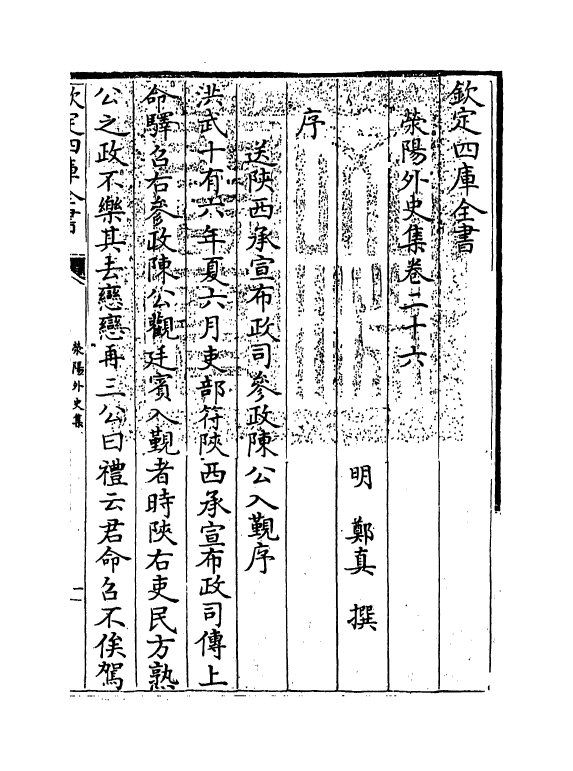 欽定四庫全書
滎陽外史集卷二十六
明 鄭真 撰
序
送陝西承宣布政司參政陳公入覲序
洪武十有六年夏六月吏部符陝西承宣布政司傳上
命驛召右參政陳公觀廷賓入覲者時陝右吏民方熟
公之政不樂其去戀戀再三公曰禮云君命召不俟駕
欽定四庫全書
滎陽外史集
一